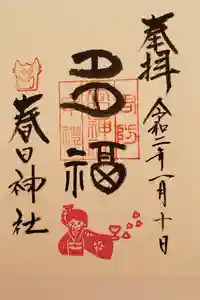 奉拝
令和二年一月十日
福
春日神社